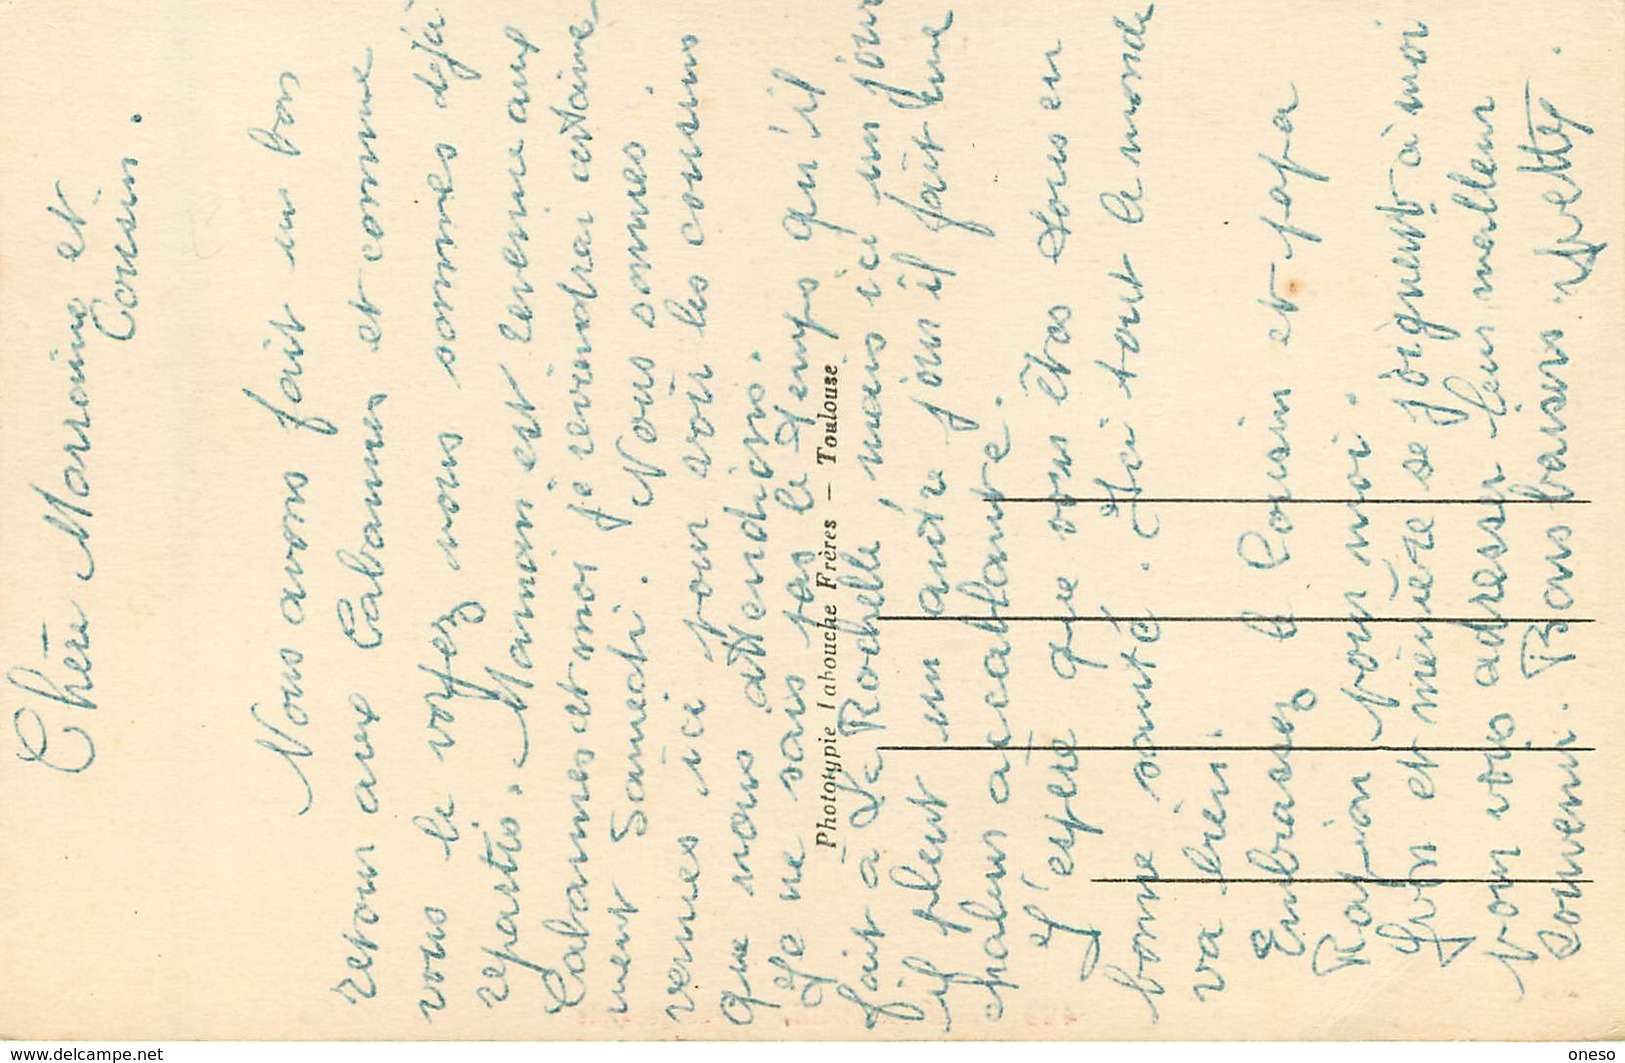 Chère Marraine et
Cousin.
Nous avons fait un bon
retour aux Cabannes et comme
vous le voyez nous sommes déjà
repartis. Maman est revenue aux
Cabannes et moi je reviendrai certaine
ment Samedi. Nous sommes
venues ici pour voir les cousins
que nous attendions.
Je ne sais pas le temps qu'il
fait à La Rochelle, mais ici un jour
il pleut un autre jour il fait une
chaleur accablante.
J'espère que vous êtes tous en
bonne santé. Ici tout le monde
va bien.
Embrassez le Cousin et papa
pour moi.
et mémère se joignent à moi
pour vous adresser leur meilleur
souvenir. Bons baisers Yvette
Phototypie Labouche Frères — Toulouse
www.delcampe.net
oneso